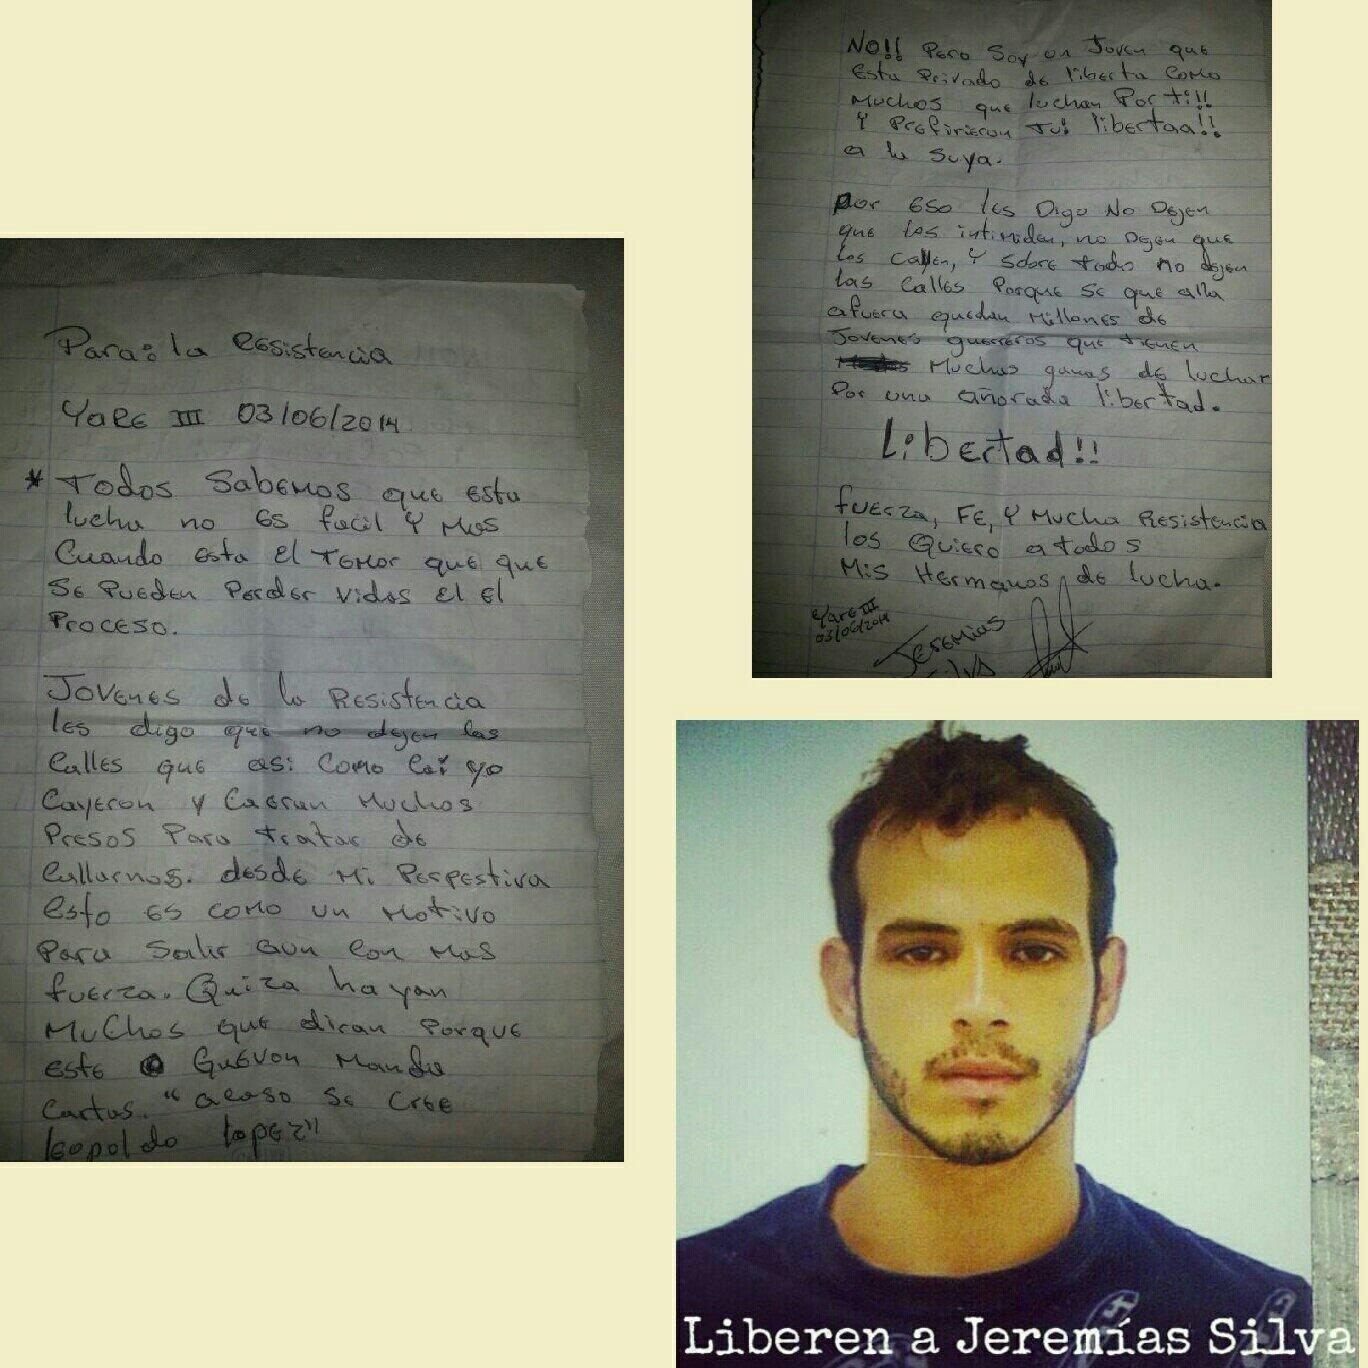 Para: la Resistencia
Yare III 03/06/2014
* Todos Sabemos que esta
lucha no es facil y mas
Cuando esta el temor que que
se pueden perder vidas el el
proceso.
Jovenes de la Resistencia
les digo que no dejen las
calles que asi como caí yo
Cayeron y Caeran muchos
presos para tratar de
callarnos. desde mi perpestiva
esto es como un motivo
para salir aun con mas
fuerza. Quiza hayan
muchos que diran porque
este Guevon manda
cartas. "acaso se cree
leopoldo lopez"
NO!! Pero Soy un Joven que
esta privado de liberta como
muchos que luchan por ti!!
Y prefirieron tu! libertaa!!
a la suya.
por eso les Digo No Dejen
que los intimiden, no dejen que
los callen, y sobre todo no dejen
las calles porque se que alla
afuera quedan millones de
Jovenes guerreros que tienen
muchas ganas de luchar
por una añorada libertad.
Libertad!!
fuerza, FE, y mucha Resistencia
los Quiero a todos
Mis Hermanos de lucha.
Yare III
03/06/2014
Jeremias
Silva
Liberen a Jeremías Silva